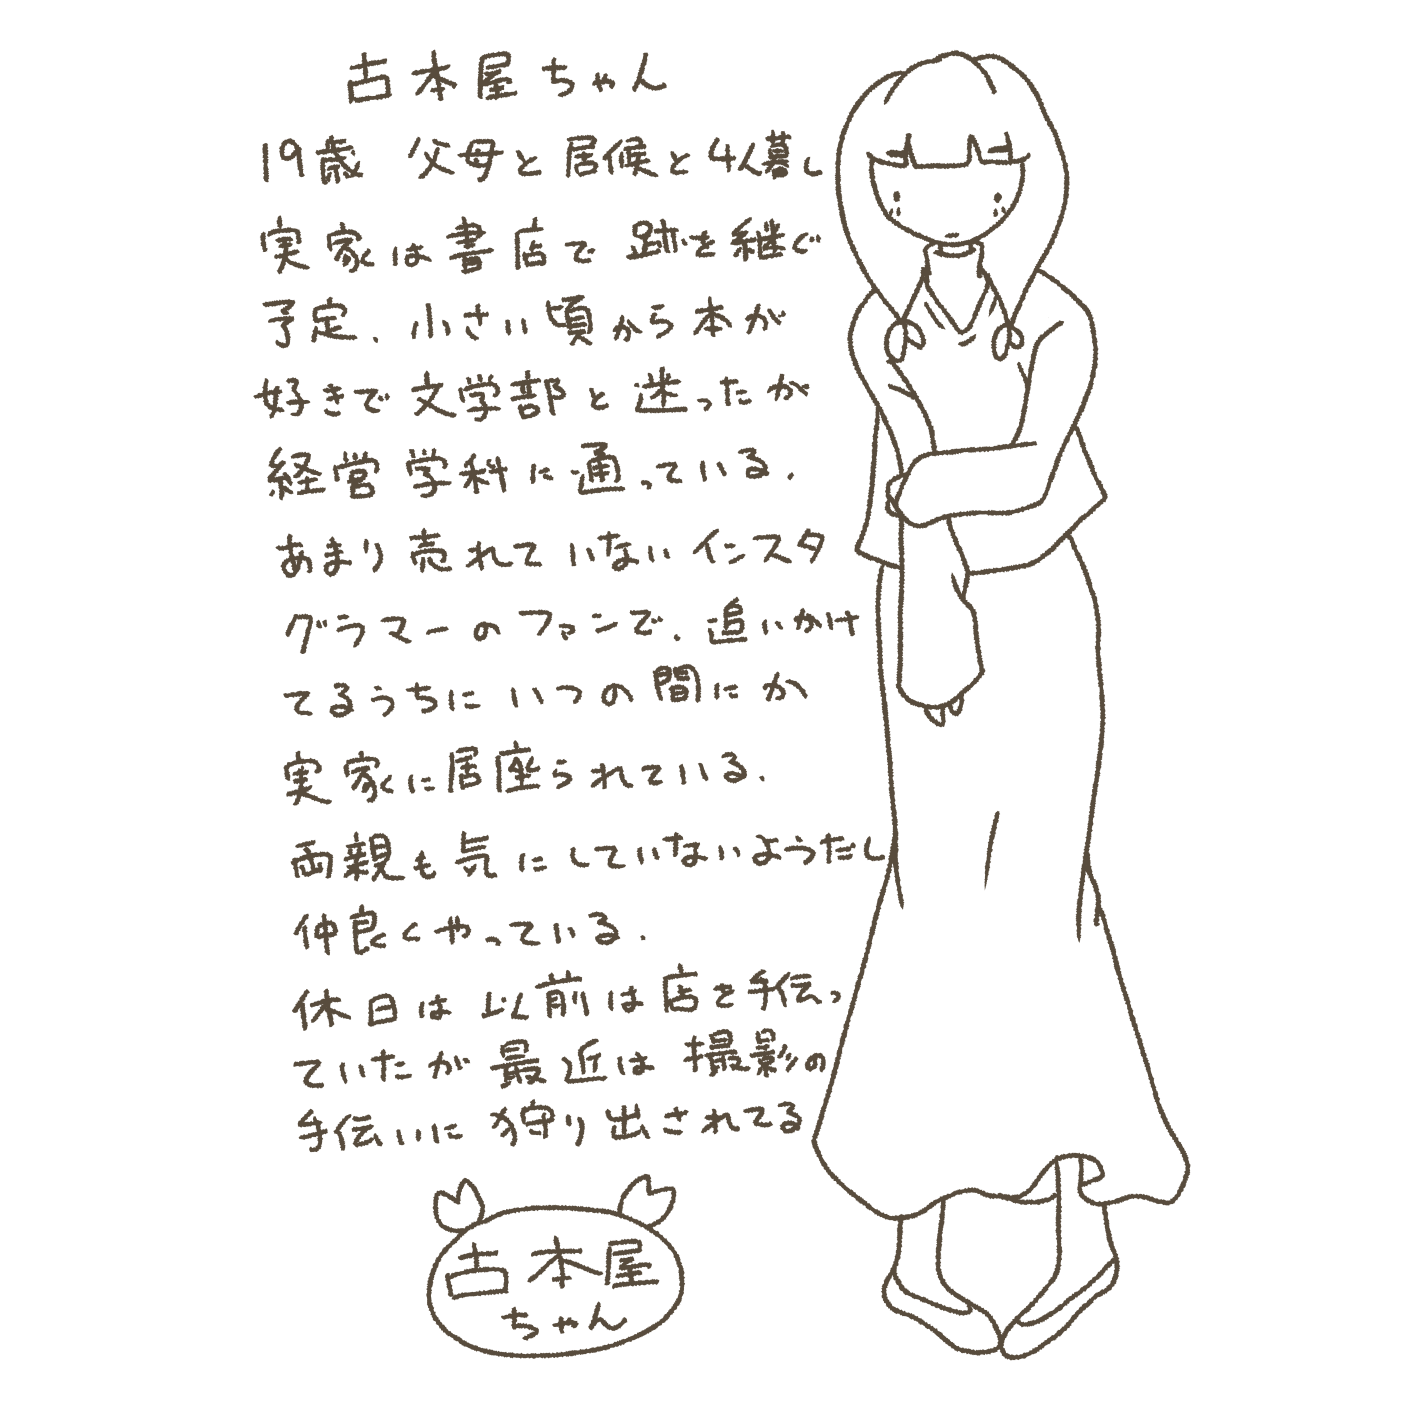 古本屋ちゃん
19歳 父母と居候と4人暮し
実家は書店で跡を継ぐ
予定.小さい頃から本が
好きで文学部と迷ったが
経営学科に通っている.
あまり売れていないインスタ
グラマーのファンで.追いかけ
てるうちにいつの間にか
実家に居座られている.
両親も気にしていないようだし
仲良くやっている.
休日は以前は店を手伝っ
ていたが最近は撮影の
手伝いに狩り出されてる
古本屋
ちゃん